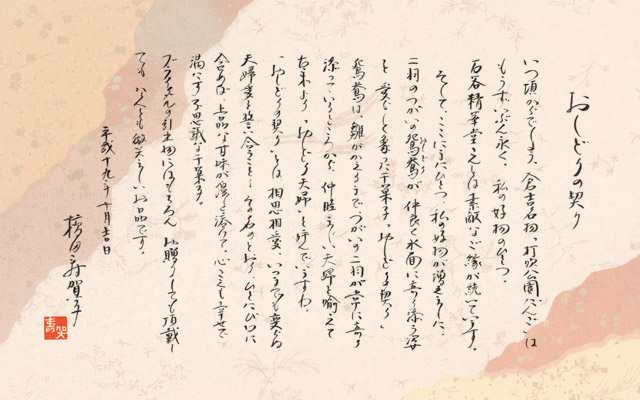 おしどりの契り
いつ頃からでしょう、倉吉名物、打吹公園だんごは
もうずいぶん永く、私の好物のひとつ。
石谷精華堂さんとは素敵なご縁が続いています。
そして、ここにまたひとつ、私の好物が増えました。
二羽のつがいの鴛鴦が、仲良く水面に寄り添う姿
を愛でして象った干菓子、「おしどりの契り」
鴛鴦は、雛がかえるまでつがいの二羽が常に寄り
添っているところから、仲睦まじい夫婦を喩えて
古来より「おしどり夫婦」と呼んでいますね。
「おしどりの契り」とは、相思相愛、いつまでも変らぬ
夫婦愛を誓い合うこと…その名のとおりひとくち口に
含めば、上品な甘味が優しく溶けて、心ごと幸せで
満たす不思議な干菓子。
ブライダルの引出物にはもちろん、お贈りしても頂戴し
ても、なんとも微笑ましいお品です。
平成十九年十月吉日